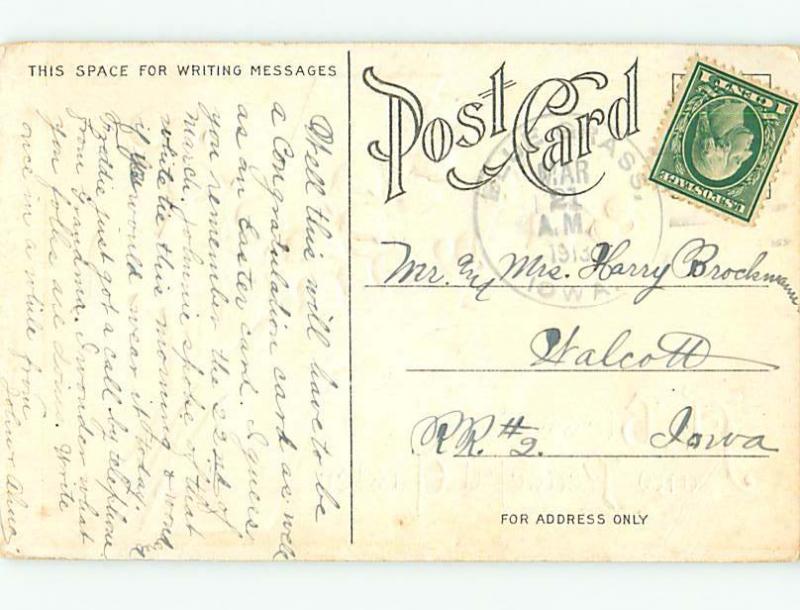 THIS SPACE FOR WRITING MESSAGES
Well this will have to be
a Congratulation card as well
as an Easter card. I guess
you remember the 22nd of
March. Johnnie spoke of that
white tie this morning &
if you would wear it today.
Freddie just got a call by telephone
from Grandma. I wonder what
you folks are doing. Write
once in a while from
Post Card
MAR
21
A.M.
1913
IOWA.
1 CENT 1
U.S. POSTAGE
Mr. and Mrs. Harry Brockmann
Walcott
RR. #2. Iowa
FOR ADDRESS ONLY